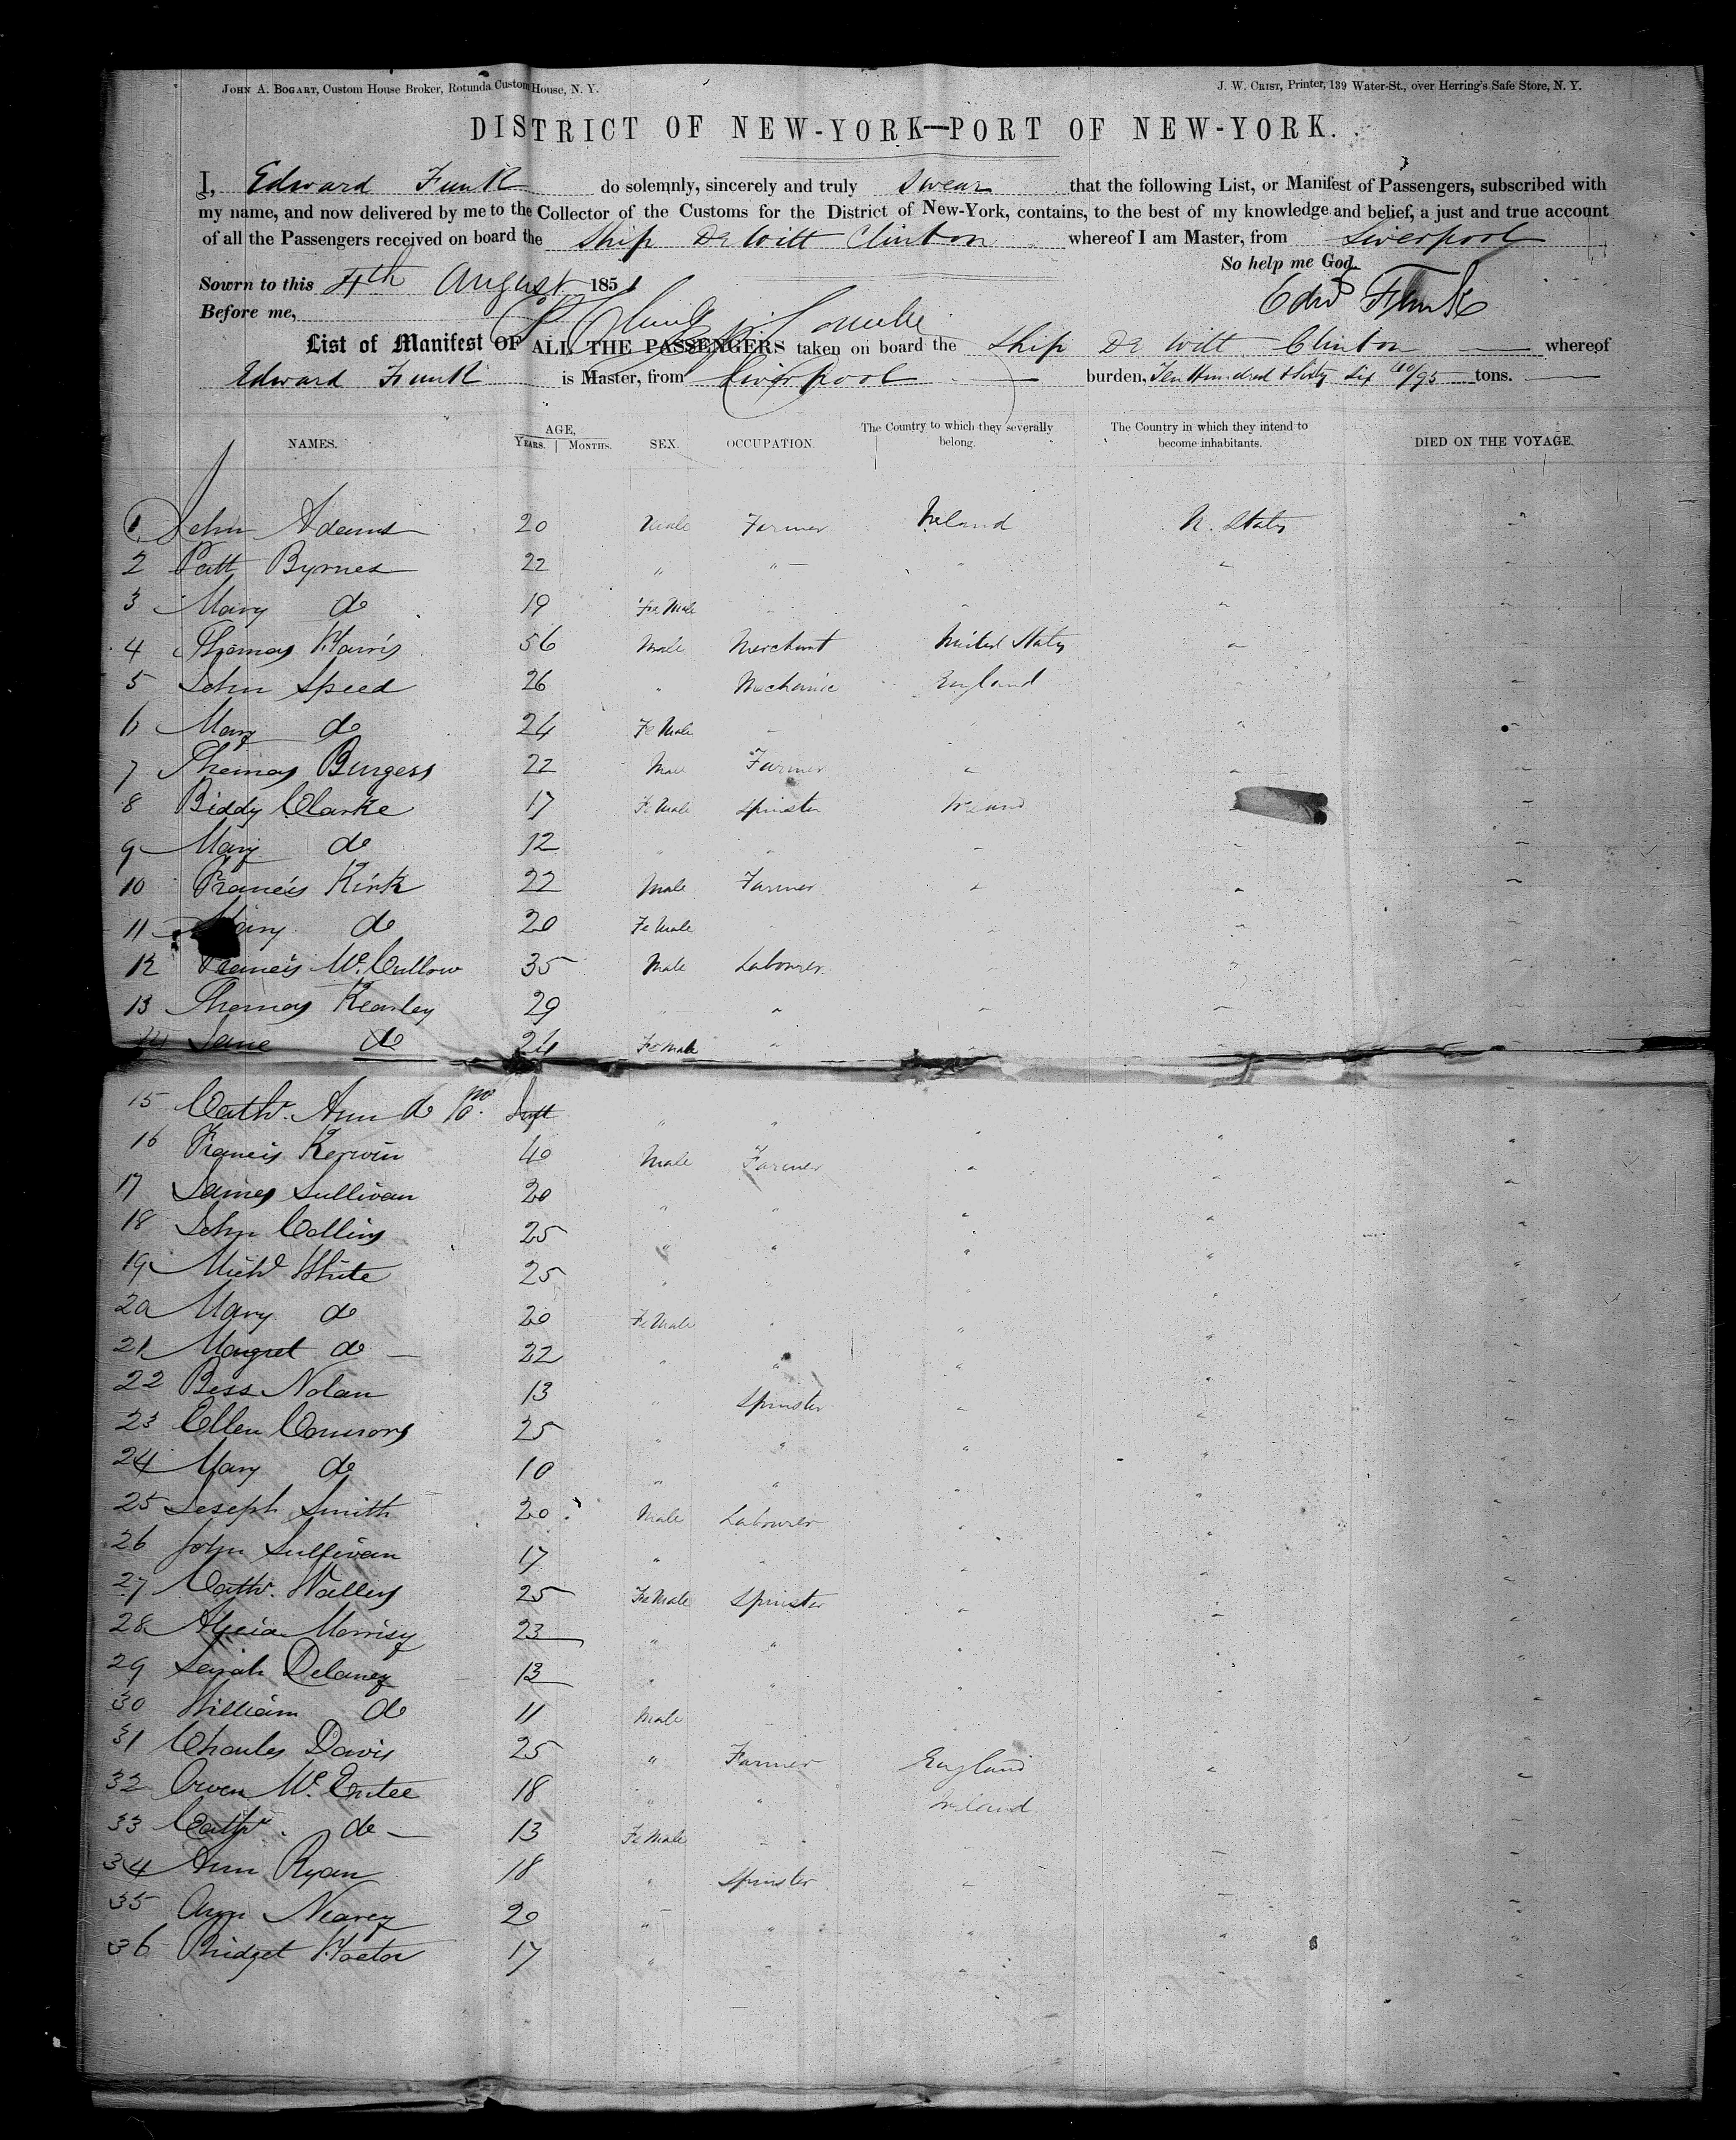 JOHN A. BOGART, Custom House Broker, Rotunda Custom House, N. Y. J. W. CRIST, Printer, 139 Water-St., over Herring's Safe Store, N. Y.
DISTRICT OF NEW-YORK—PORT OF NEW-YORK.
I, Edward Funk do solemnly, sincerely and truly swear that the following List, or Manifest of Passengers, subscribed with
my name, and now delivered by me to the Collector of the Customs for the District of New-York, contains, to the best of my knowledge and belief, a just and true account
of all the Passengers received on board the Ship De Witt Clinton whereof I am Master, from Liverpool
So help me God.
Sowrn to this 4th August 1851 Edwd Funk
Before me,
List of Manifest OF ALL THE PASSENGERS taken on board the Ship De Witt Clinton whereof
Edward Funk is Master, from Liverpool burden, Ten Hundred & Sixty Six 60/95 tons.
NAMES. AGE, YEARS. | MONTHS. SEX. OCCUPATION. The Country to which they severally belong. The Country in which they intend to become inhabitants. DIED ON THE VOYAGE.
1 John Adams 20 Male Farmer Ireland U. States "
2 Patt Byrnes 22 " " " " "
3 Mary do 19 Fe Male " " " "
4 Thomas Harris 56 Male Merchant United States " "
5 John Speed 26 " Mechanic England " "
6 Mary do 24 Fe Male " " " "
7 Thomas Burgess 22 Male Farmer " " "
8 Biddy Clarke 17 Fe Male Spinster Ireland " "
9 Mary do 12 " " " " "
10 Francis Kirk 22 Male Farmer " " "
11 Mary do 20 Fe Male " " " "
12 Francis McCullow 35 Male Labourer " " "
13 Thomas Kearley 29 " " " " "
14 Jane do 24 Fe Male " " " "
15 Cathr. Ann do 10 mo Inft " " " " "
16 Francis Kerwin 40 Male Farmer " " "
17 James Sullivan 20 " " " " "
18 John Collins 25 " " " " "
19 Michl White 25 " " " " "
20 Mary do 20 Fe Male " " " "
21 Margret do 22 " " " " "
22 Bess Nolan 13 " Spinster " " "
23 Ellen Connors 25 " " " " "
24 Mary do 10 " " " " "
25 Joseph Smith 20 Male Labourer " " "
26 John Sullivan 17 " " " " "
27 Cathr. Wallis 25 Fe Male Spinster " " "
28 Alicia Morrisy 23 " " " " "
29 Sarah Delaney 13 " " " " "
30 William do 11 Male " " " "
31 Charles Davis 25 " Farmer England " "
32 Owen McEntee 18 " " Ireland " "
33 Cathr. do 13 Fe Male " " " "
34 Ann Ryan 18 " Spinster " " "
35 Ann Nearey 20 " " " " "
36 Bridget Hoctor 17 " " " " "